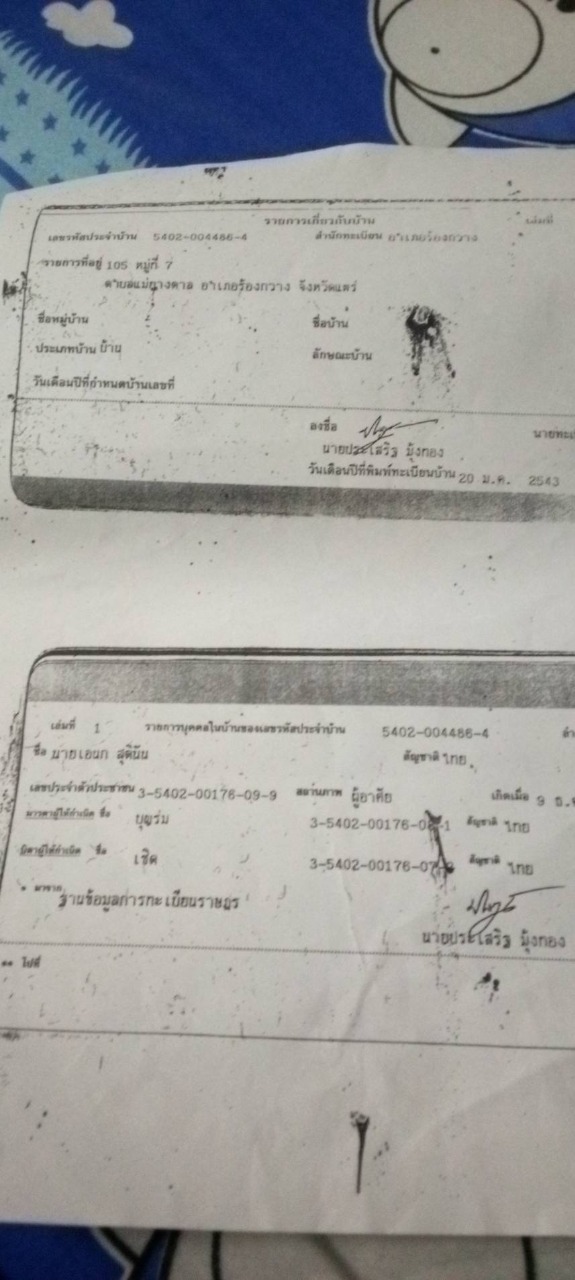 รายการเกี่ยวกับบ้าน เล่มที่
เลขรหัสประจำบ้าน 5402-004486-4 สำนักทะเบียน อำเภอร้องกวาง
รายการที่อยู่ 105 หมู่ที่ 7
ตำบลแม่ยางตาล อำเภอร้องกวาง จังหวัดแพร่
ชื่อหมู่บ้าน ชื่อบ้าน
ประเภทบ้าน บ้าน ลักษณะบ้าน
วันเดือนปีที่กำหนดบ้านเลขที่
ลงชื่อ นายทะเ
นายประเสริฐ มุ้งทอง
วันเดือนปีที่พิมพ์ทะเบียนบ้าน 20 ม.ค. 2543
เล่มที่ 1 รายการบุคคลในบ้านของเลขรหัสประจำบ้าน 5402-004486-4 ลำ
ชื่อ นายเอนก สุดินัน สัญชาติ ไทย
เลขประจำตัวประชาชน 3-5402-00176-09-9 สถานภาพ ผู้อาศัย เกิดเมื่อ 9
มารดาผู้ให้กำเนิด ชื่อ บุญร่ม 3-5402-00176-0 -1 สัญชาติ ไทย
บิดาผู้ให้กำเนิด ชื่อ เชิด 3-5402-00176-07- สัญชาติ ไทย
* มาจาก ฐานข้อมูลการทะเบียนราษฎร
นายประเสริฐ มุ้งทอง
** ไปที่